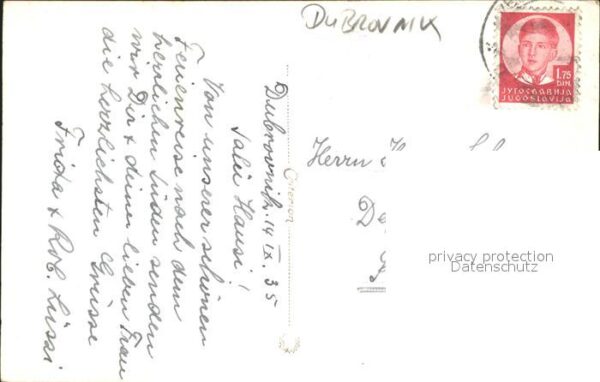 DUBROVNIK
1.75
DIN.
ЈУГОСЛАВИЈА
JUGOSLAVIJA
Dubrovnik, 14. IX. 35
Salü Hansi!
Von unserer schönen
Ferienreise nach dem
herrlichen Süden senden
wir Dir & deiner lieben Frau
die herzlichsten Grüsse
Frida & Rob.
Criterion
Herrn
privacy protection
Datenschutz